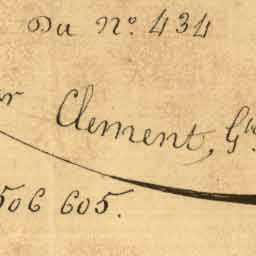 Du N.º 434
er Clement, G
506 605.